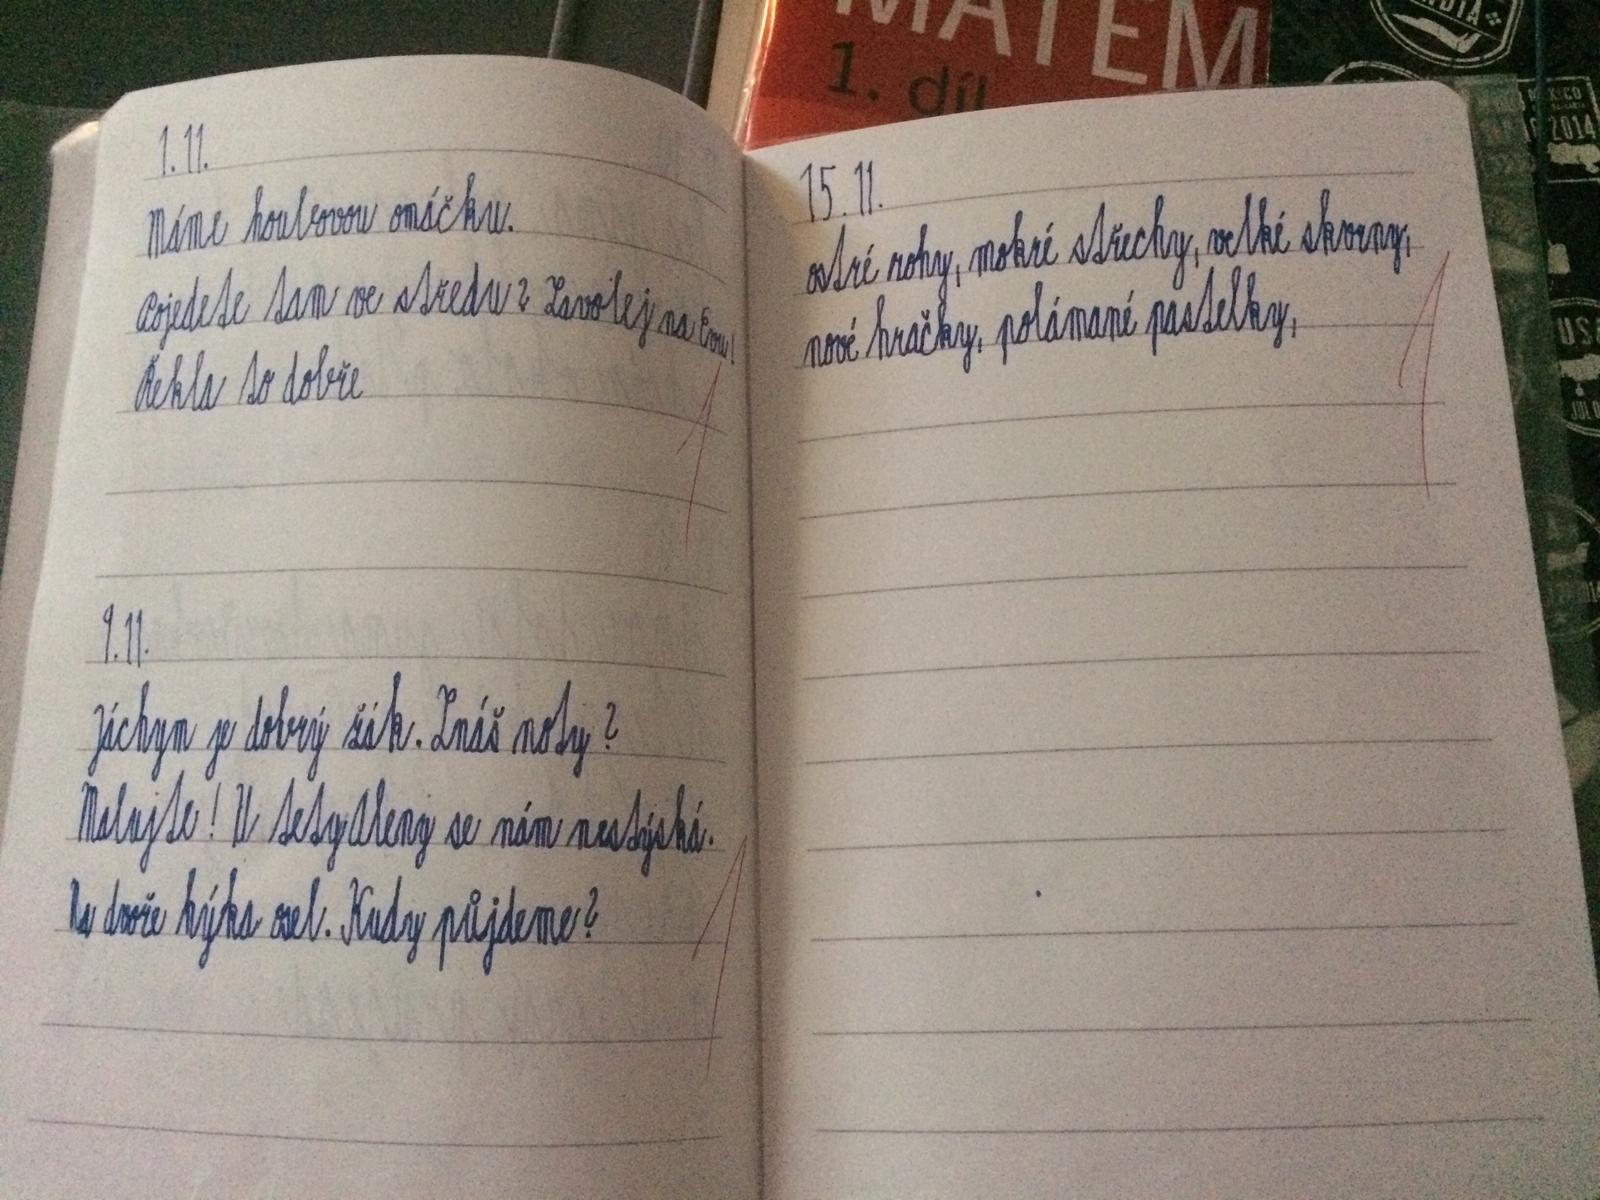 MATEM
1. díl
INDIA
MEXICO
2014
USA
1.11.
Máme houbovou omáčku.
Pojedete tam ve středu? Zavolej na Evu!
Řekla to dobře
9.11.
Jáchym je dobrý žák. Znáš noty?
Malujte! U tety Aleny se nám nestýská.
Na dvoře hýká osel. Kudy půjdeme?
1
1
15.11.
ostré rohy, mokré střechy, velké skvrny,
nové hračky, polámané pastelky,
1